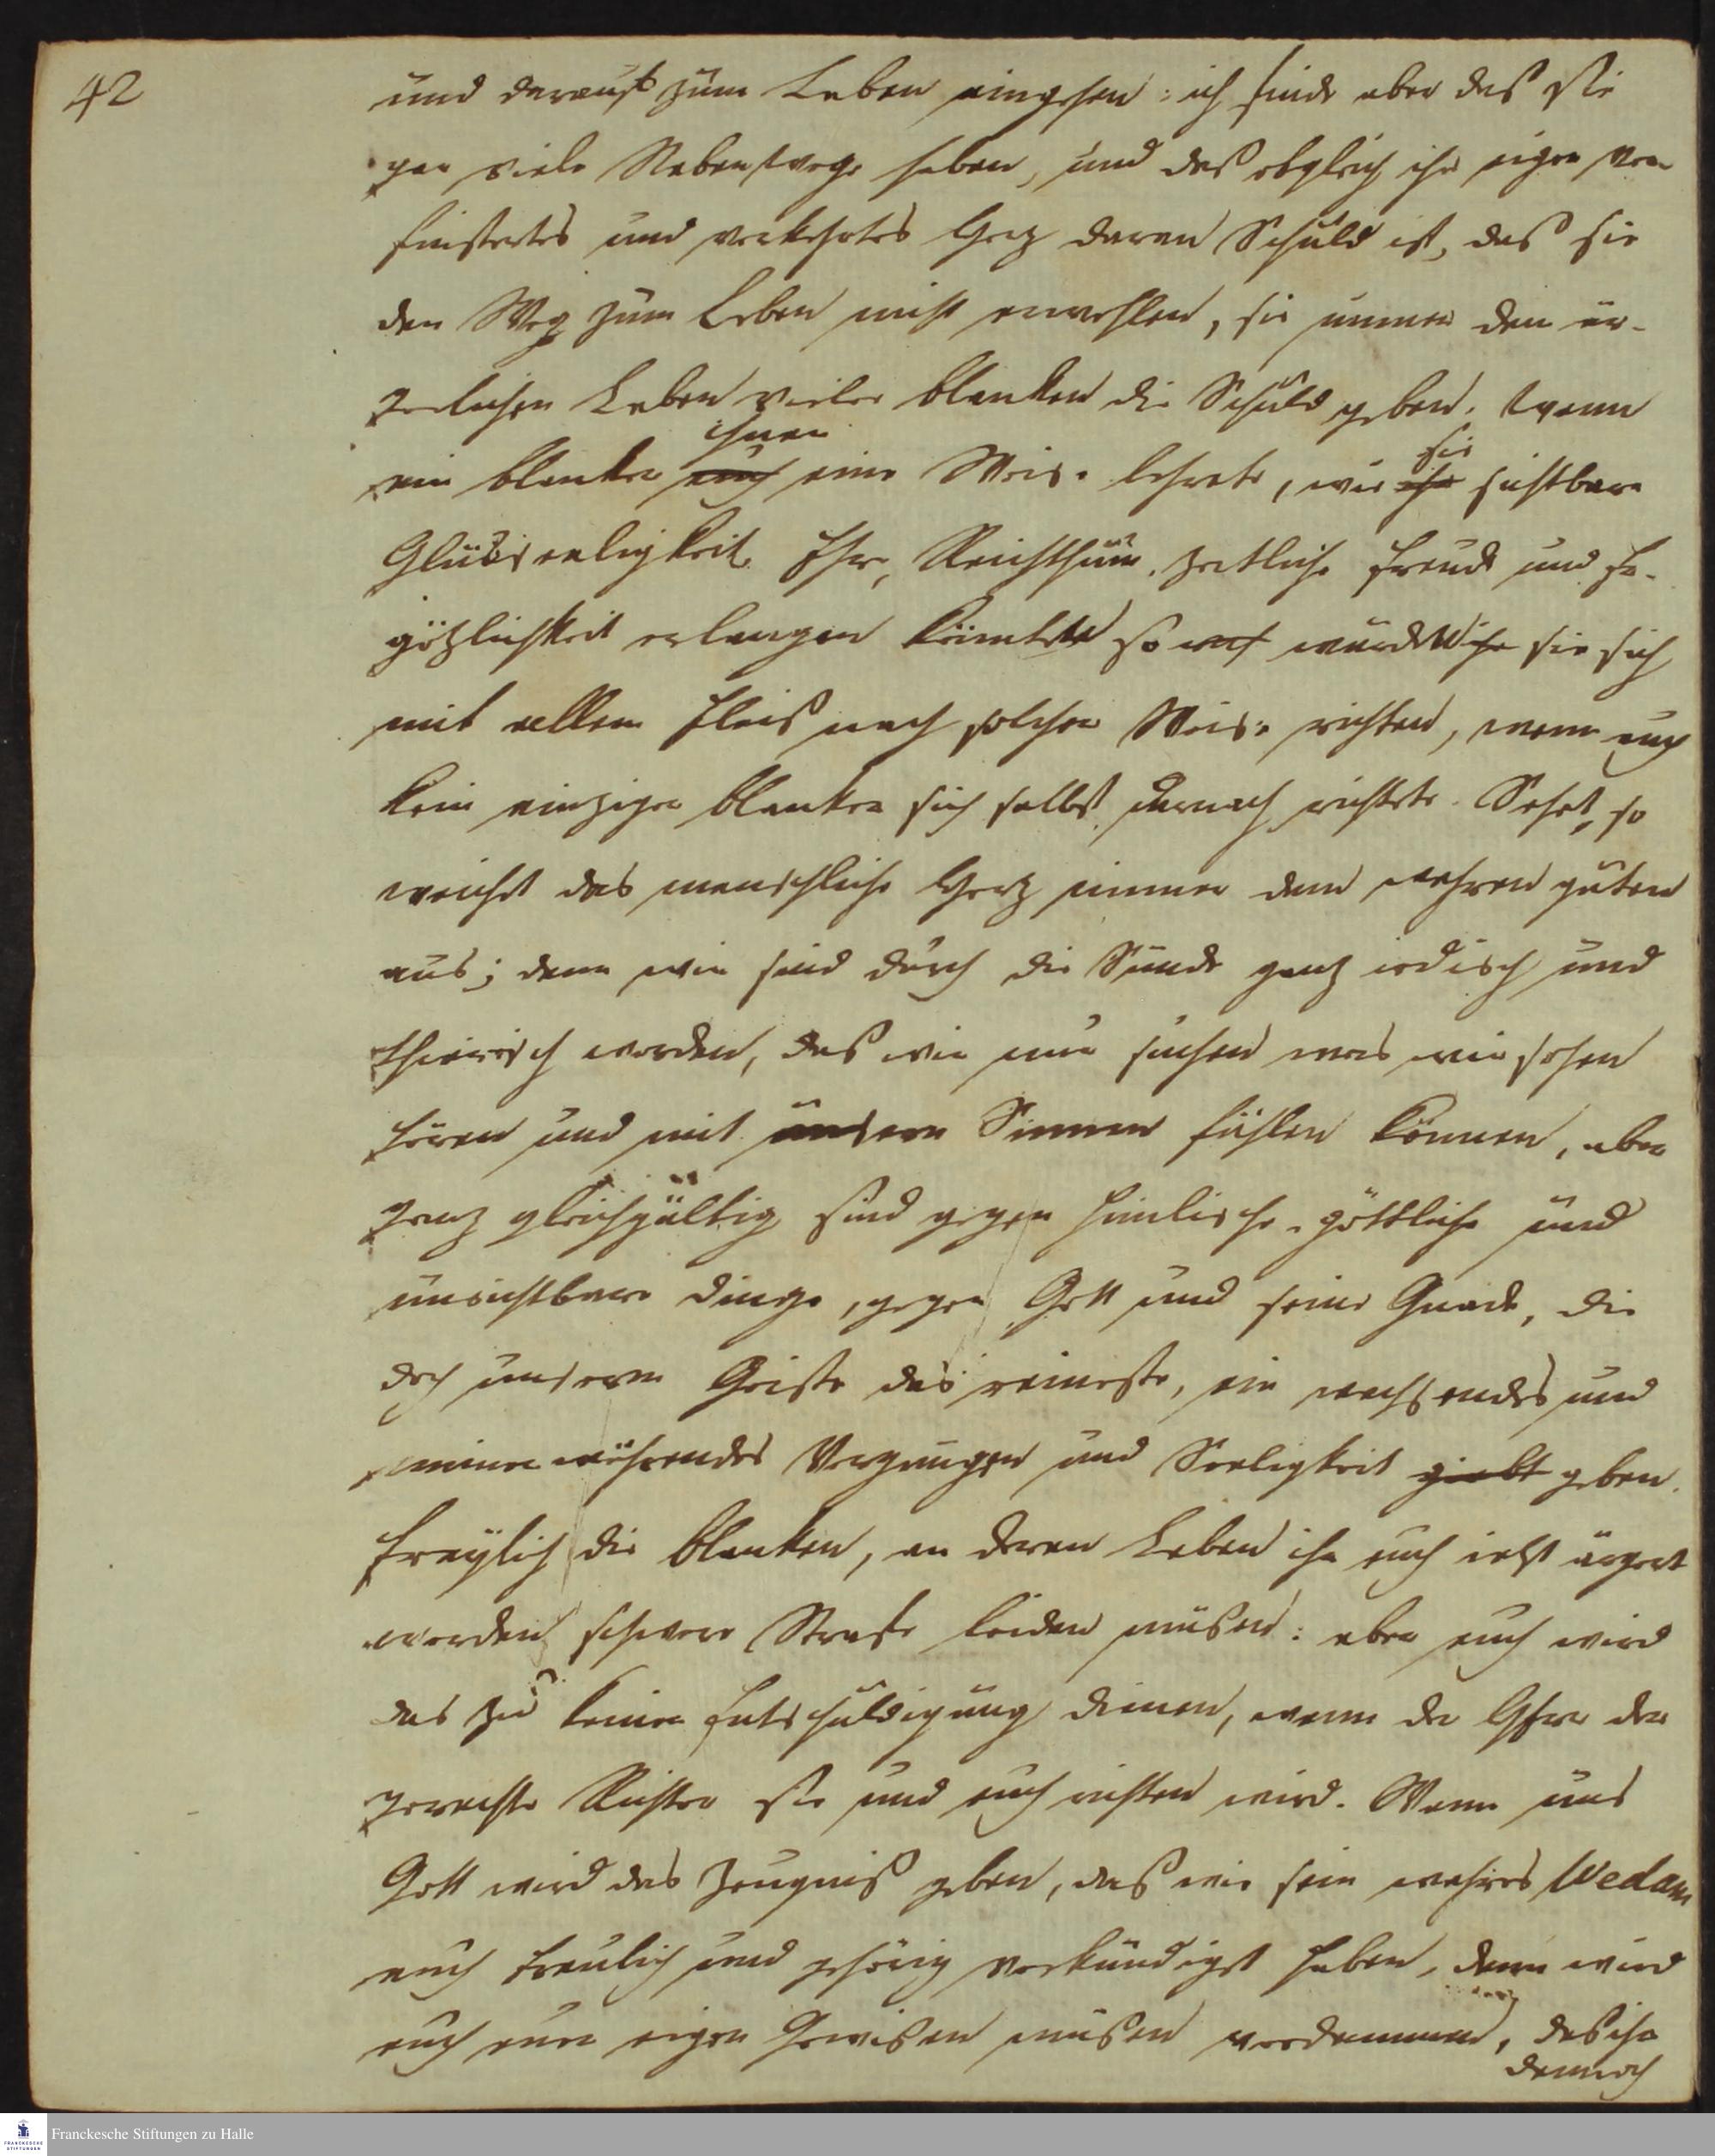 42
und darauf zum Leben eingehen: ich finde aber das sie
gar viele Nebenwege haben, und das obgleich ihr eigen ver
finstertes und verkehrtes Herz daran Schuld ist, daß sie
den Weg zum Leben nicht erwehlen, sie immer dem är-
gerlichen Leben vieler blanken die Schuld geben. wenn
ihnen sie
ein blanker euch eine Weise lehrete, wie ihr sichtbare
Glükseeligkeit Ehre, Reichthum, zeitliche Freude und Er-
götzlichkeit erlangen könnten so würden ihr sie sich
mit allem Fleiß nach solcher Weise richten, wenn auch
kein einziger blanker sich selbst darnach richtete. Sehet, so
weicht das menschliche Herz immer dem wahren guten
aus; denn wir sind durch die Sünde ganz irdisch und
thierisch worden, das wir nur suchen was wir sehen
hören und mit unsern Sinnen fühlen können, aber
ganz gleichgültig sind gegen himlische, göttliche und
unsichtbare dinge, gegen Gott und seine Gnade, die
doch unserm Geiste das reineste, ein wachsendes und
immerwährendes Vergnügen und Seeligkeit giebt geben.
Freylich die blanken, an deren Leben ihr euch ietzt ärgert
werden schwere Strafe leiden müßen: aber euch wird
das zu keiner Entschuldigung dienen, wenn der HErr der
gerechte Richter sie und euch richten wird. Wenn uns
Gott wird das Zeugniß geben, daß wir sein wahres Wedam
euch treulich und gehörig verkündiget haben, denn wird
euch euer eigen Gewißen müßen verdammen, daß ihr
dennoch
Franckesche Stiftungen zu Halle
FRANCKESCHE STIFTUNGEN